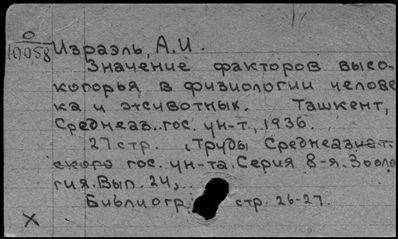 О
10058
Израэль, А.И.
Значение факторов высо-
когорья в физиологии челове
ка и животных. Ташкент,
Среднеаз. гос. ун-т, 1936.
27 стр. (Труды Среднеазиат-
ского гос. ун-та. Серия 8-я. Зооло
гия. Вып. 24,
Библиогр. стр. 26-27.
X